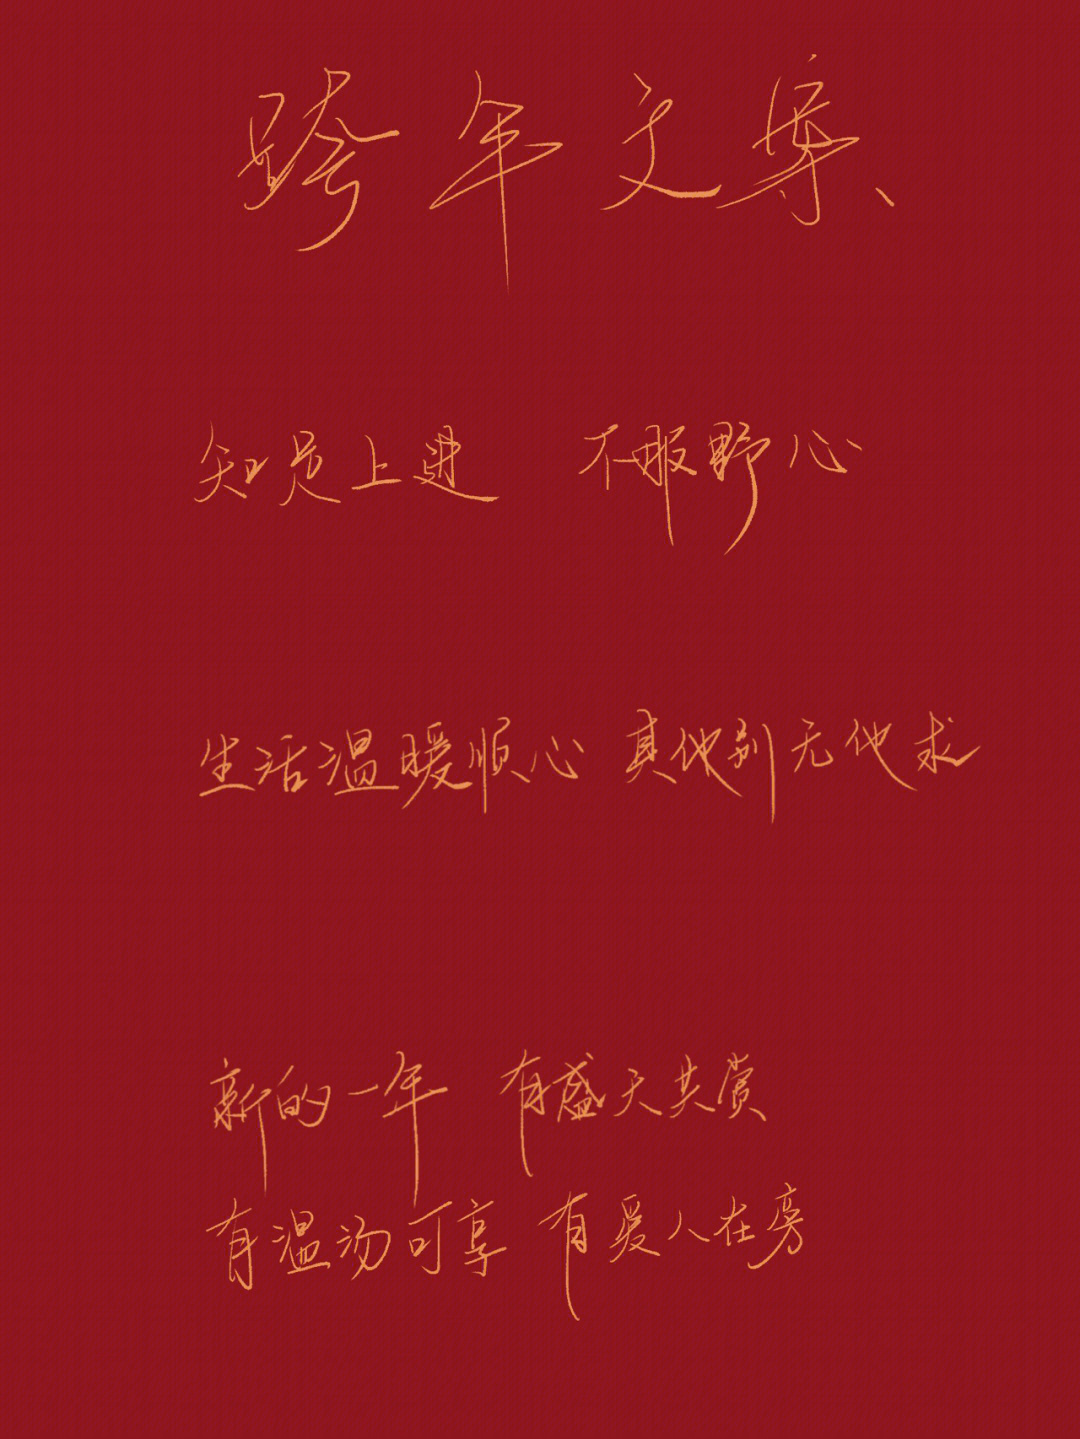 跨年文案
知足上进 不服野心
生活温暖顺心 其他别无他求
新的一年 有盛天共赏
有温汤可享 有爱人在旁